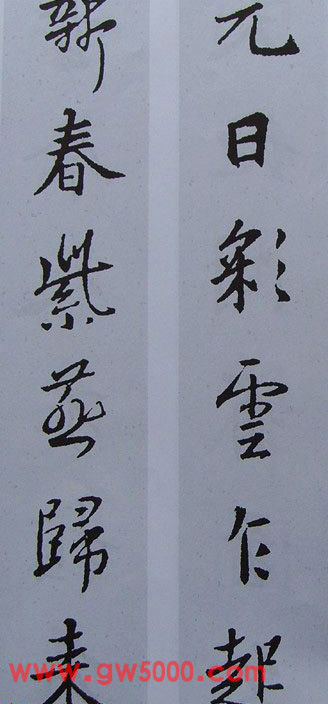 元日彩雲乍起
新春紫燕歸来
www.gw5000.com